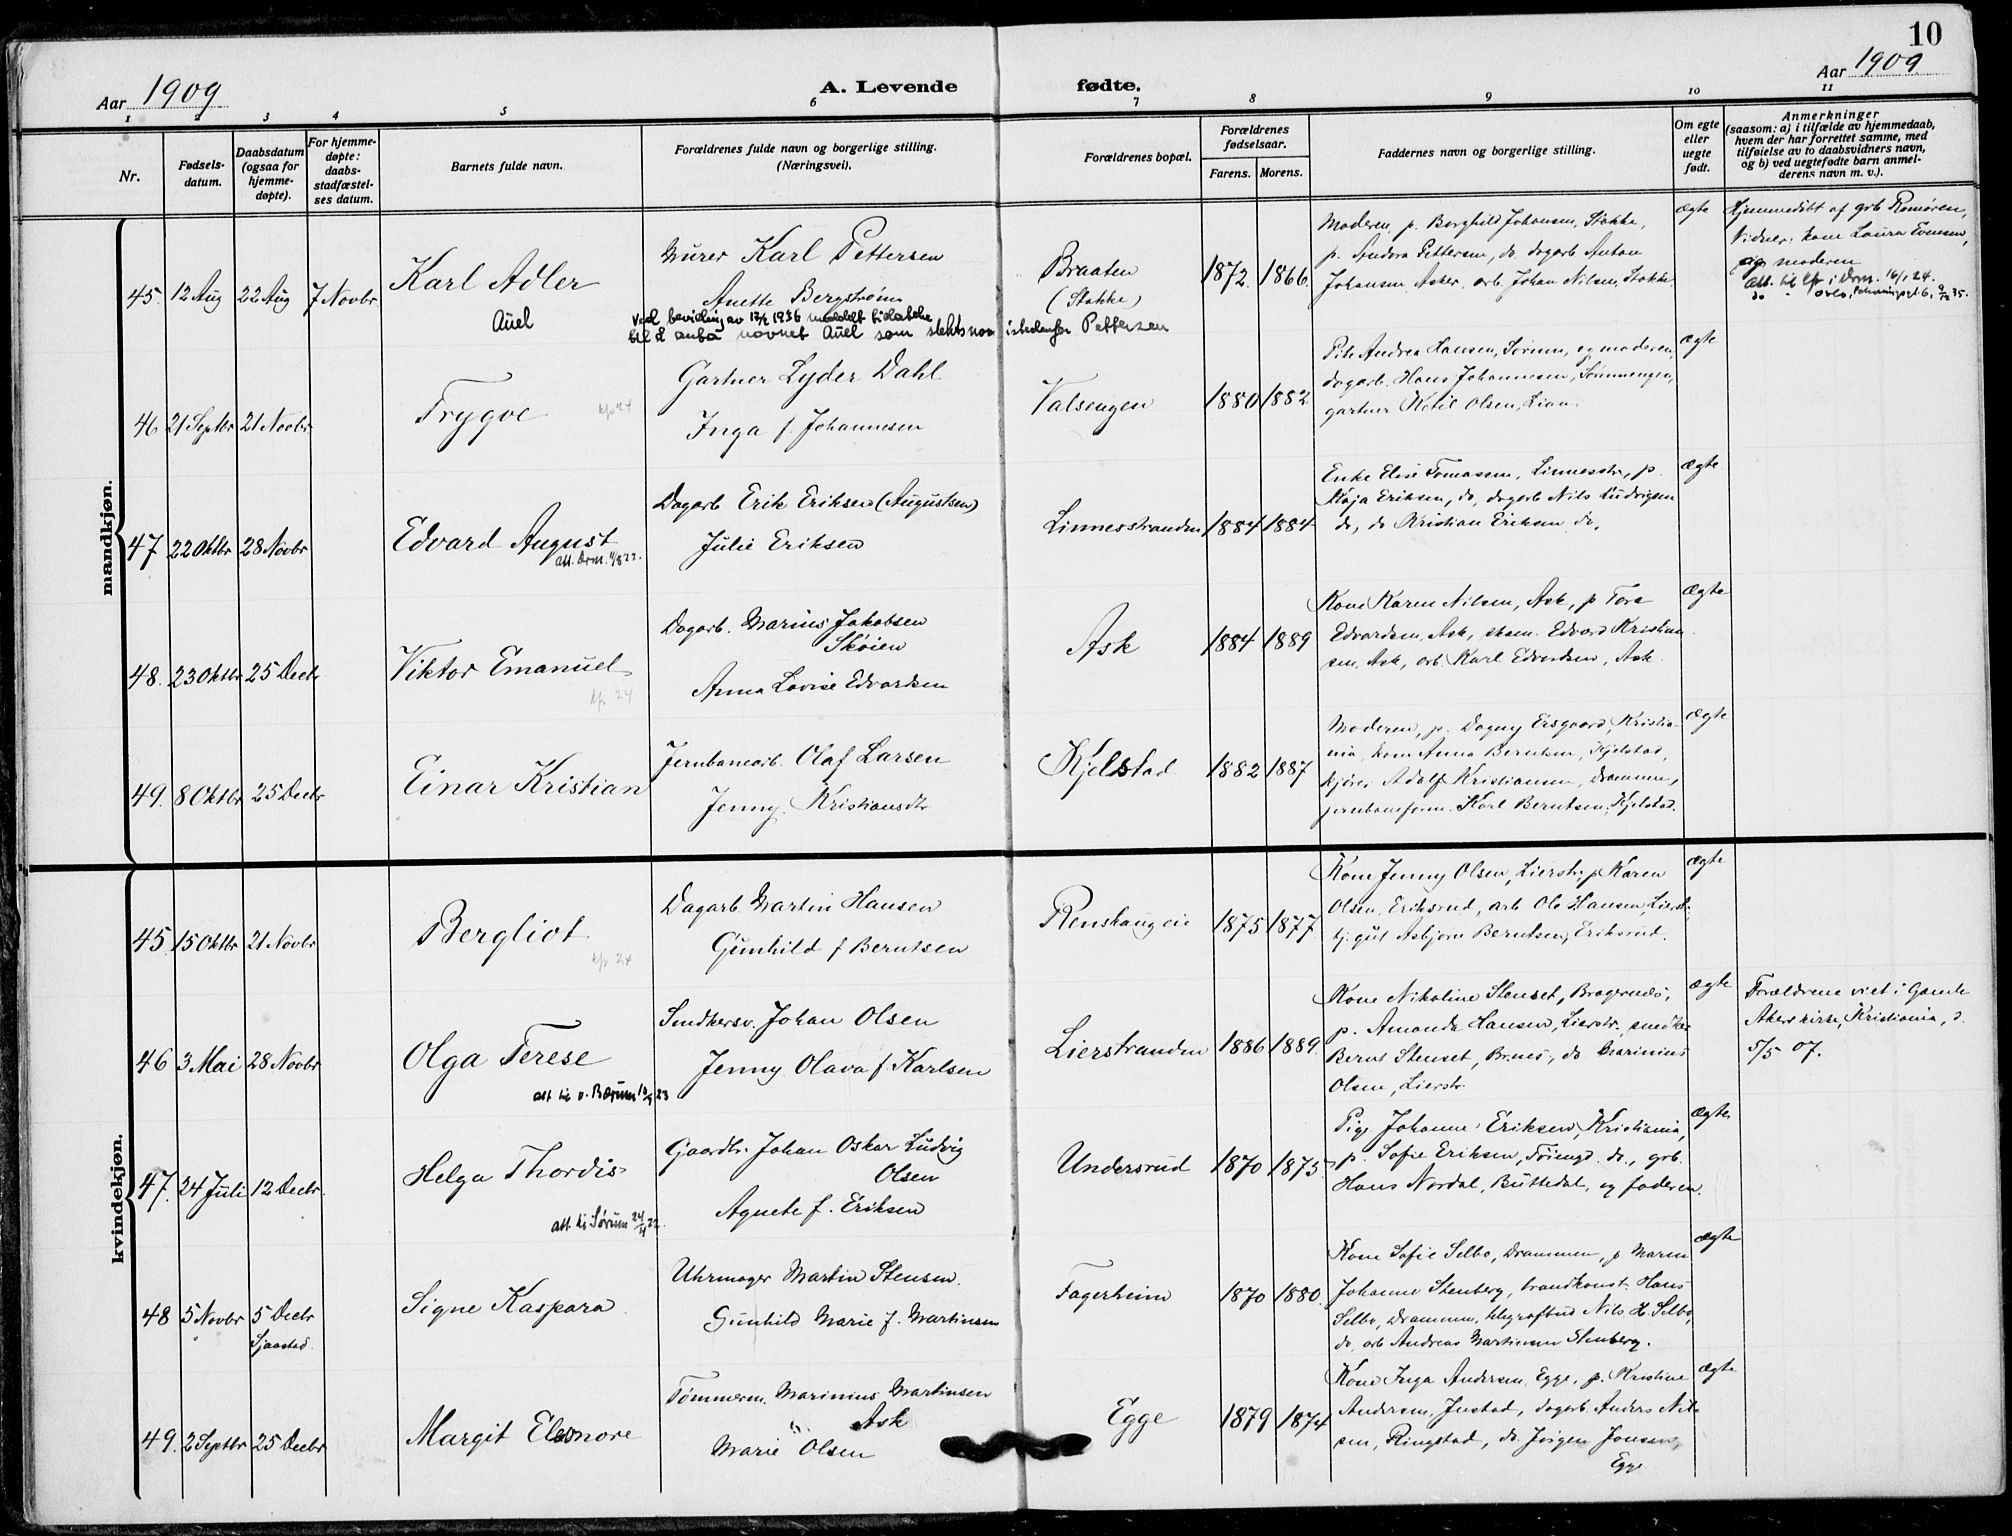 10
Aar 1909
A. Levende fødte.
Aar 1909
1 2 3 4 5 6 7 8 9 10 11
Nr.
Fødsels-
datum.
Daabsdatum
(ogsaa for
hjemme-
døpte).
For hjemme-
døpte:
daabs-
stadfæstel-
ses datum.
Barnets fulde navn.
Forældrenes fulde navn og borgerlige stilling.
(Næringsvei).
Forældrenes bopæl.
Forældrenes
fødselsaar.
Farens. Morens.
Faddernes navn og borgerlige stilling.
Om egte
eller
uegte
født.
Anmerkninger
(saasom: a) i tilfælde av hjemmedaab,
hvem der har forrettet samme, med
tilføielse av to daabsvidners navn,
og b) ved uegtefødte barn anmel-
derens navn m. v.).
mandkjøn.
45. 12 Aug 22 Aug 7 Novbr
Karl Adler
Auel
Murer Karl Pettersen
Anette Bergstrøm
Ved bevilling av 12/2 1936 meddelt tillatelse
til å anta navnet Auel som slektsnavn istedenfor Pettersen
Braaten
(Stokke)
1872. 1866.
Moderen, p. Borghild Johansen, Stokke,
p. Andora Pettersen, do. dagarb Anton
Johansen, Asker, arb. Johan Nilsen, Stokke.
ægte
Hjemmedøbt af grb Romøren,
Vidner: kone Laura Evensen,
og moderen
att. til kfr i Drm. 16/1 24.
46 21 Septbr 21 Novbr
Trygve
kfr 24
Gartner Lyder Dahl
Inga f. Johannesen
Valsengen
1880 1882
Pike Andrea Hansen, Sørum, og moderen,
dagarb. Hans Johannesen, Tømmengen,
gartner Ketil Olsen, Lian.
ægte
47 22 Oktbr 28 Novbr
Edvard August
att. Drm. 11/8 22.
Dagarb Erik Eriksen (Augustsen)
Julie Eriksen
Linnesstranden
1884 1884
Enke Elise Tomassen, Linnesstr, p.
Kaja Eriksen, do, dagarb Nils Ludvigsen
do, do Kristian Eriksen do.
ægte
48. 23 Oktbr 25 Decbr
Viktor Emanuel
kfr 24
Dagarb. Marius Jakobsen
Skøien
Anna Lovise Edvardsen
Ask
1884 1889
Kone Karen Nilsen, Ask, p Tora
Edvardsen, Ask, skom. Edvard Kristian
sen, Ask, arb. Karl Edvardsen, Ask.
Ægte
49. 8 Oktbr 25 Decbr
Einar Kristian
Jernbanearb. Olaf Larsen
Jenny Kristiansdtr
Kjelstad
1882 1887
Moderen, p. Dagny Ersgaard, Kristia-
nia, kone Anna Berntsen, Kjelstad,
kjører Adolf Kristiansen, Drammen,
jernbaneform. Karl Berntsen, Kjelstad.
Ægte
kvindekjøn.
45. 15 Oktbr 21 Novbr
Bergliot
kfr 24
Dagarb Martin Hansen
Gunhild f Berntsen
Renskaug eie
1875 1877
Kone Jenny Olsen, Lierstr, p Karen
Olsen, Eriksrud, arb Ole Hansen, Lierst.
tj.gut Asbjørn Berntsen, Eriksrud.
Ægte
46 3 Mai 28 Novbr
Olga Terese
Snedkersv. Johan Olsen
Jenny Olava f. Karlsen
Lierstranden
1886 1889.
Kone Nikoline Stenset, Bragernæs,
p. Amanda Hansen, Lierstr. snedker
Bernt Stenset, Br.næs, do Marinius
Olsen, Lierstr.
ægte
Forældrene viet i Gamle
Akers kirke, Kristiania, d.
5/5 07.
47. 24 Juli 12 Decbr.
Helga Thordis
att. til Sørum 24/4 22.
Gaardbr. Johan Oskar Ludvig
Olsen
Agnete f. Eriksen
Undersrud
1870 1875
Pige Johanne Eriksen, Kristiania,
p. Sofie Eriksen, do., grb.
Hans Nordal, Buttedal, og faderen.
Ægte
48 5 Novbr 5 Decbr
Sjaastad.
Signe Kaspara
Uhrmager Martin Stensen.
Gunhild Marie f. Martinsen
Fagerheim
1870 1880
Kone Sofie Selbo, Drammen, p Maren
Johanne Stenberg, brandkonst. Hans
Selbo, Drammen, telegrafbud Nils H. Selbo,
do, arb Andreas Martinsen Stenberg.
ægte
49. 2 Septbr 25 Decbr
Margit Eleonore
Tømmerm. Marinius Martinsen
Ask
Marie Olsen
Egge
1879 1874
Kone Inga Andersen, Egge, p. Kristine
Andersen, Justad, dagarb Anders Nil-
sen, Ringstad, do. Jørgen Jonsen,
Egge
ægte